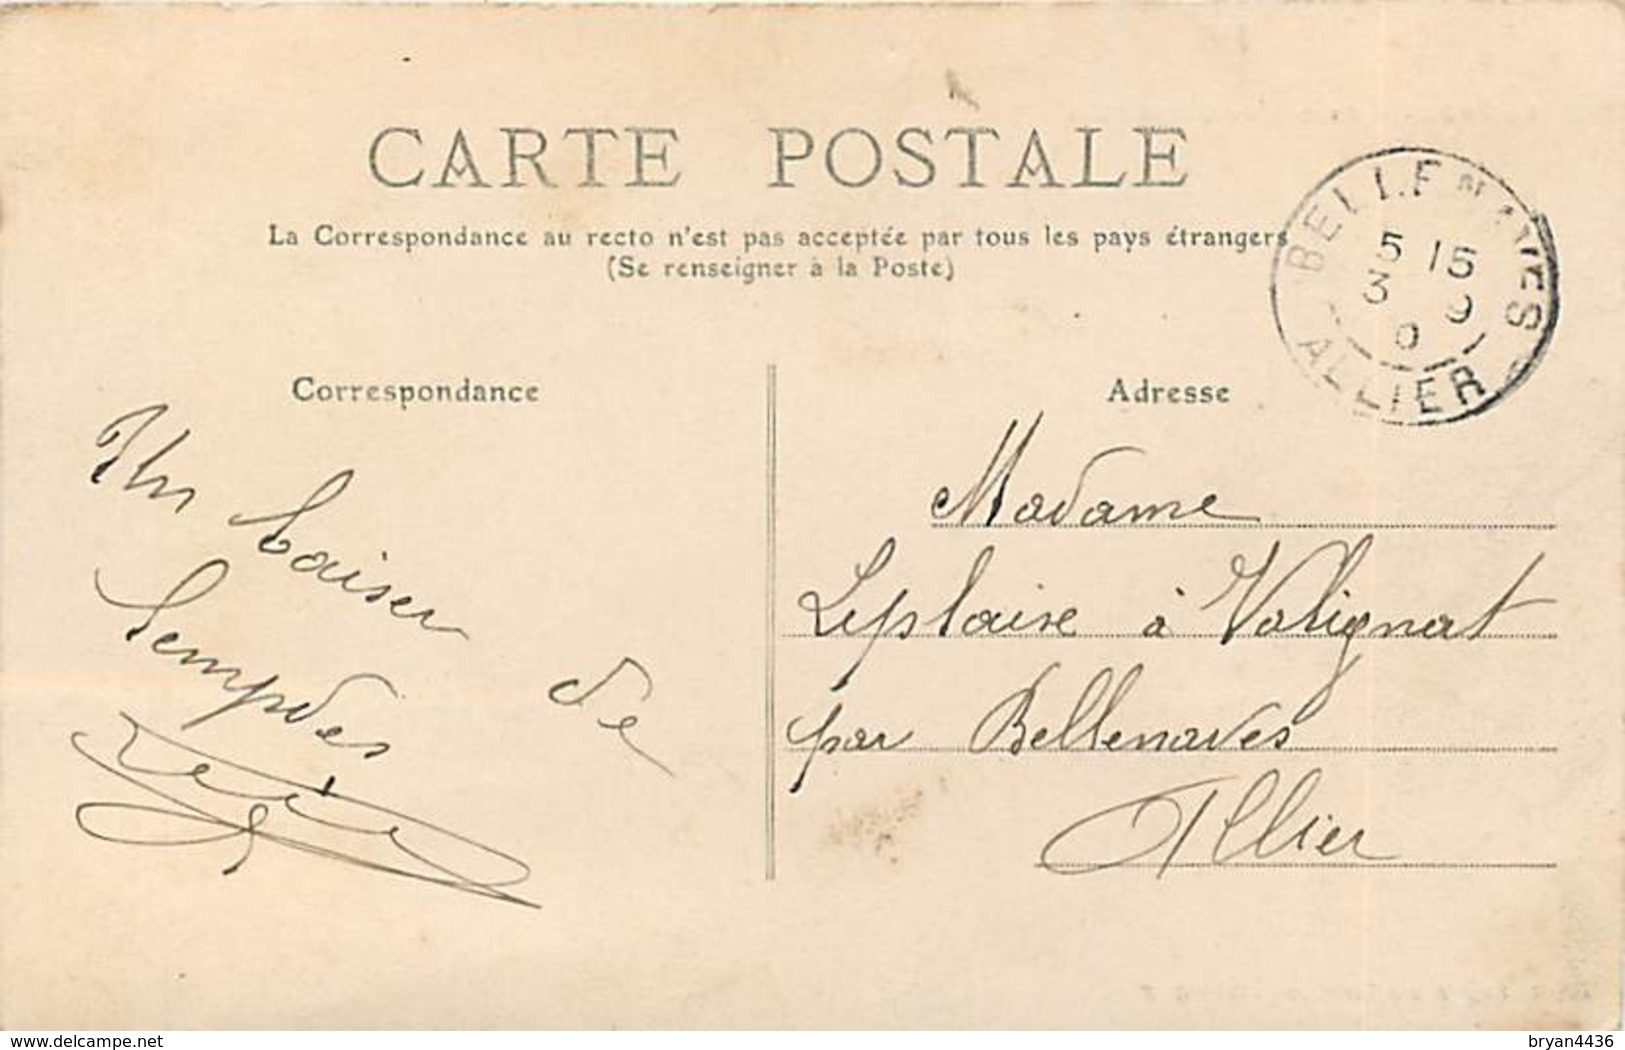 CARTE POSTALE
La Correspondance au recto n'est pas acceptée par tous les pays étrangers
(Se renseigner à la Poste)
BELLENAVES
5 15
3 9
0
ALLIER
Correspondance
Un baiser de
Lempdes
Adresse
Madame
Leplaise à Valignat
par Bellenaves
Allier
delcampe.net
bryan4436